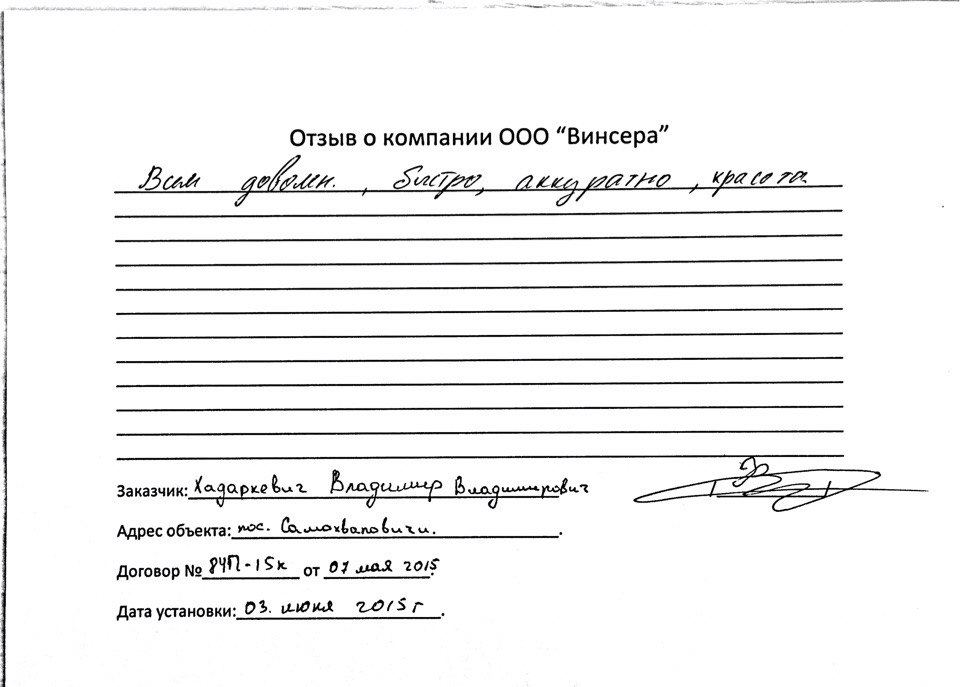 Отзыв о компании ООО “Винсера”
Всем доволен. , быстро, аккуратно , красота
Заказчик: Хадаркевич Владимир Владимирович
Адрес объекта: пос. Самохваловичи.
Договор № 84П-15к от 07 мая 2015.
Дата установки: 03. июня 2015 г.